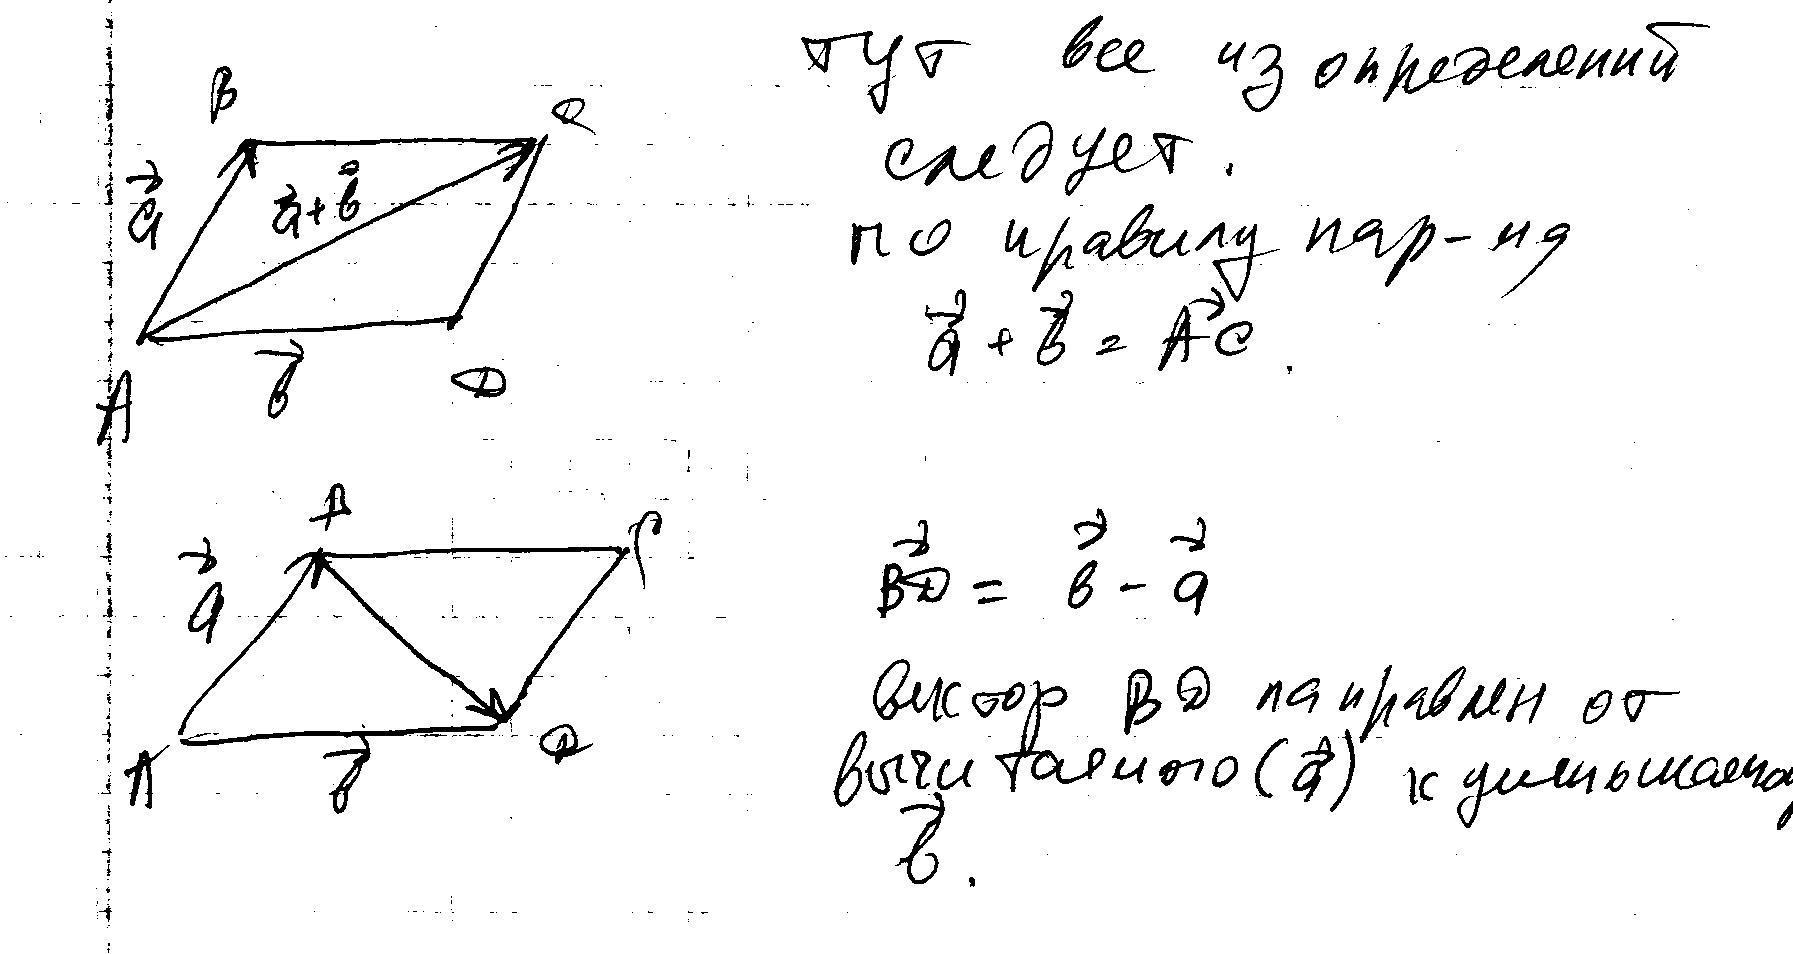 тут все из определений
следует.
по правилу пар-мa
a⃗ + b⃗ = AC⃗.
B
C
a⃗
a⃗+b⃗
A
b⃗
D
B
C
a⃗
BD⃗ = b⃗ - a⃗
вектор BD направлен от
A
b⃗
D
вычитаемого (a⃗) к уменьшаемому
b⃗.